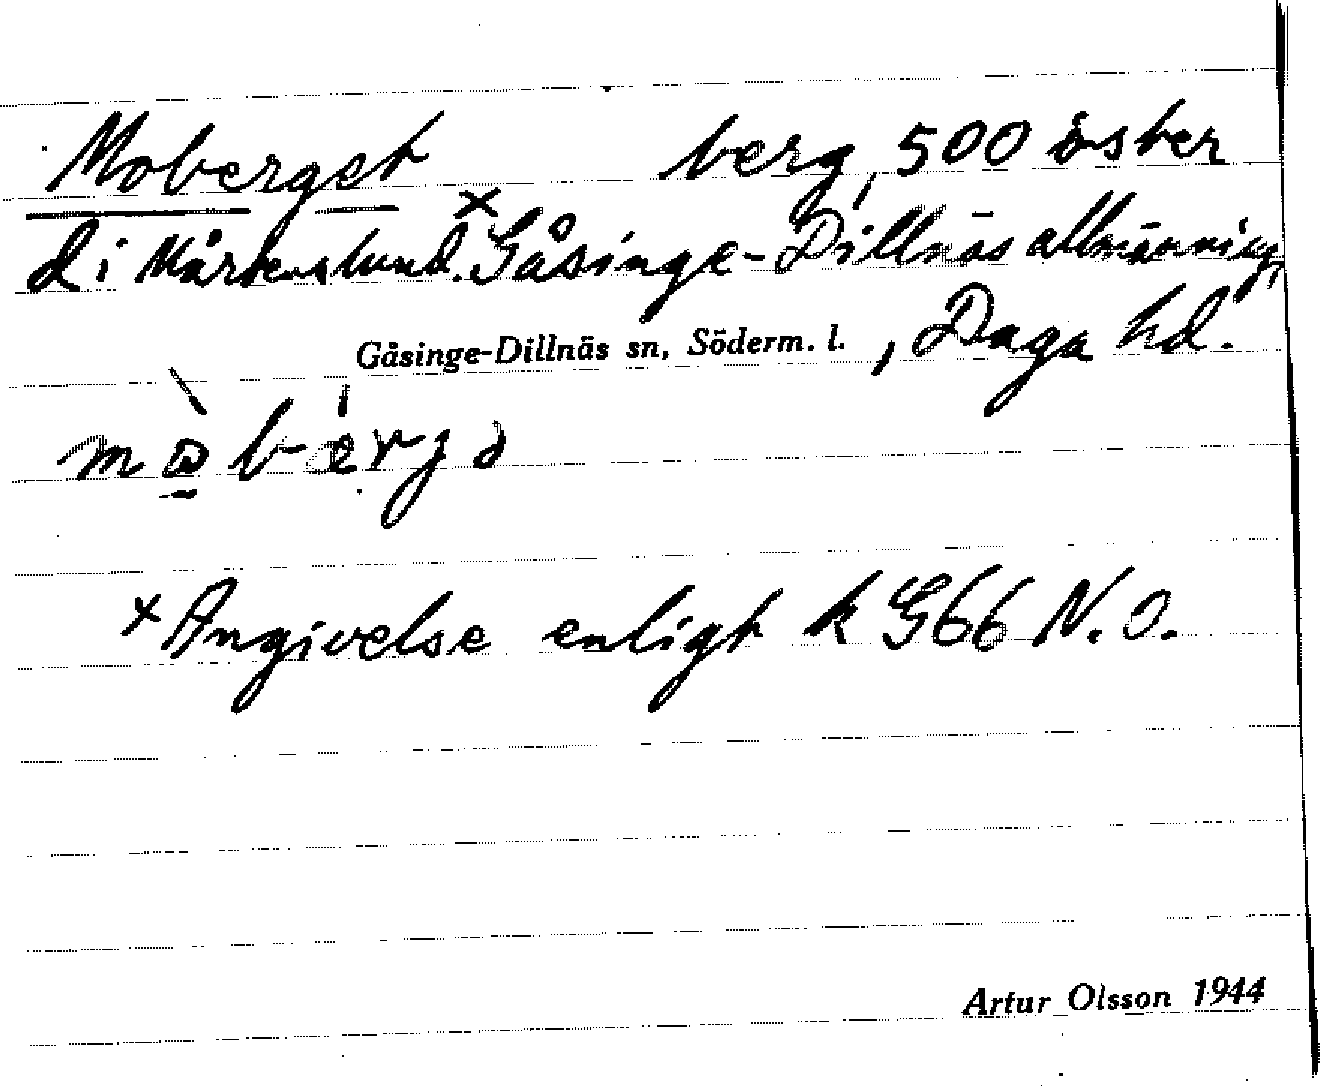 Moberget berg, 500 öster
d i Mårtenslund.x Gåsinge-Dillnäs allmänning,
Gåsinge-Dillnäs sn, Söderm. l. , Daga hd.
x Angivelse enligt k G66 N.O.
Artur Olsson 1944